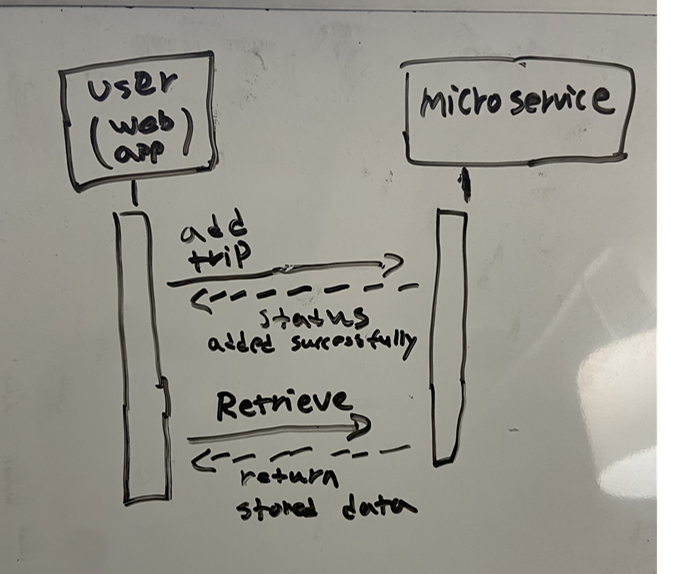 user
(web
app)
microservice
add
trip
status
added successfully
Retrieve
return
stored data